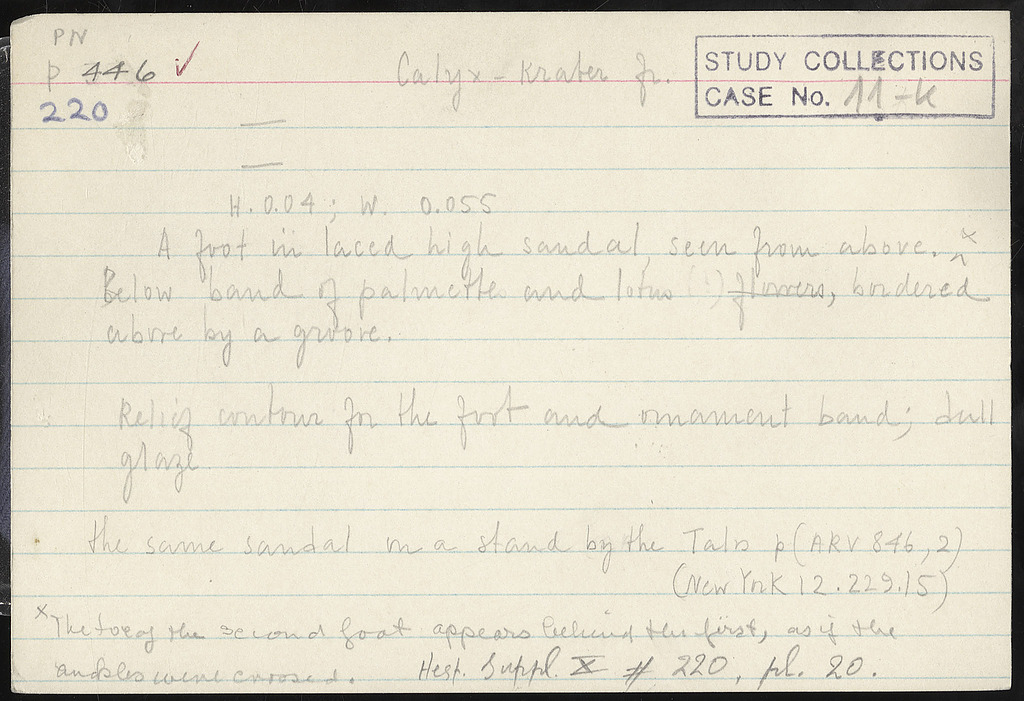 PN
P 446 ✓
220
Calyx-Krater fr.
STUDY COLLECTIONS
CASE No. 11-K
—
—
H. 0.04; W. 0.055
A foot in laced high sandal, seen from above. x
Below band of palmettes and lotus (?) flowers, bordered
above by a groove.
Relief contour for the foot and ornament band; dull
glaze.
the same sandal on a stand by the Talos p (ARV 846, 2)
(New York 12.229.15)
x The toe of the second foot appears behind the first, as if the
ankles were crossed. Hesp. Suppl. X # 220, pl. 20.